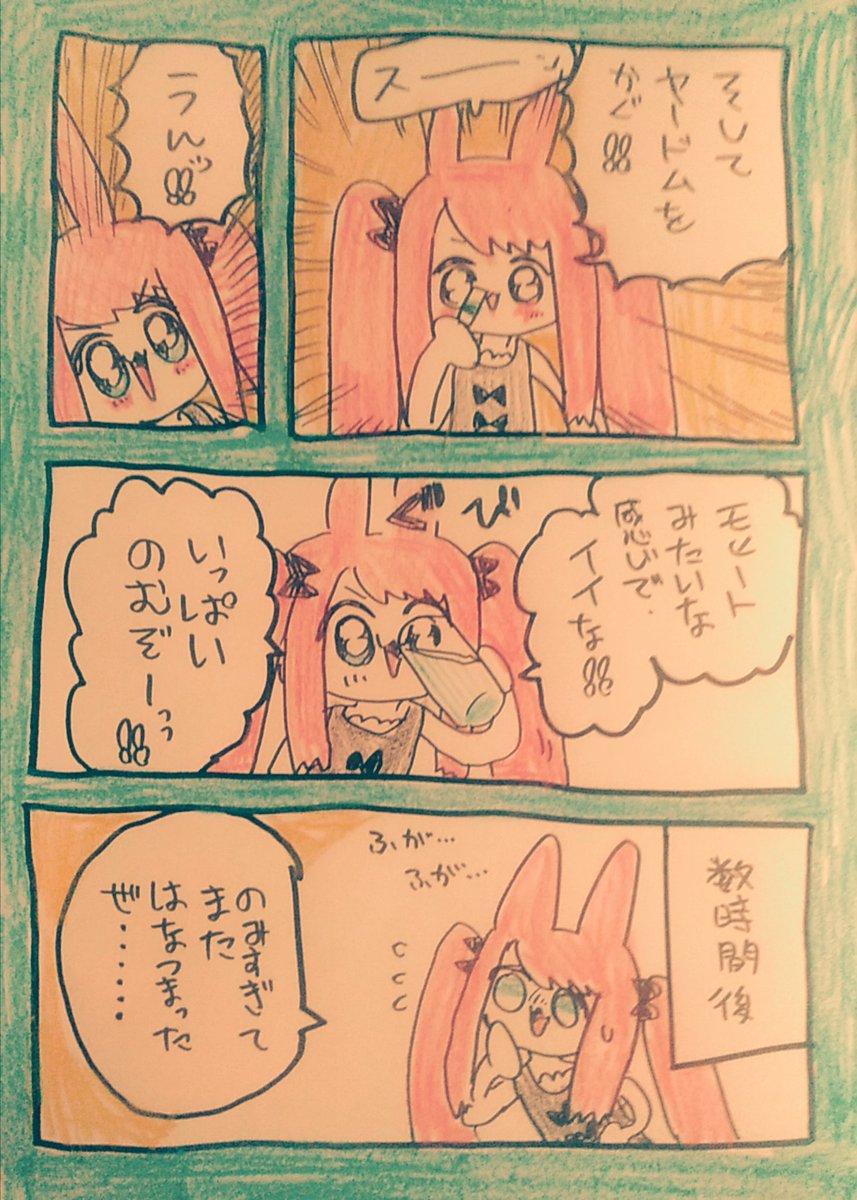 そして
ヤードムを
かぐ!!
スーーッ
うんッ!!
モヒート
みたいな
感じで
イイな!!
ぐび
いっぱい
のむぞーっっ
!!
数時間後
ふが…
ふが…
のみすぎて
また
はなつまった
ぜ……